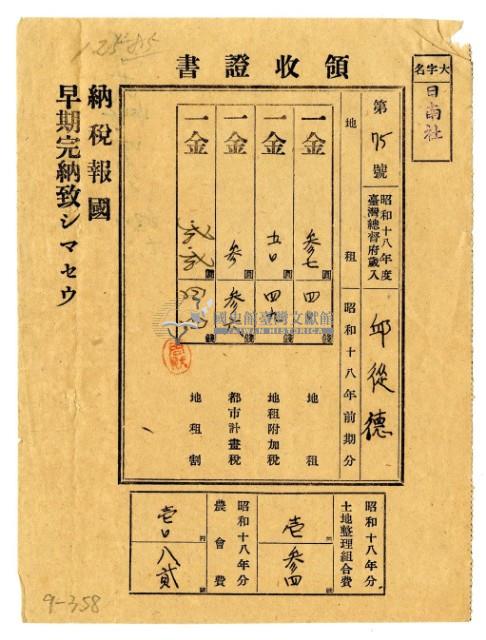 領收證書
大字名
日南社
第75號
昭和十八年度
臺灣總督府歲入
邱從德
地租
昭和十八年前期分
一金 參七圓 四 錢 地租
一金 五〇圓 四 錢 地租附加稅
一金 參圓 參 錢 都市計畫稅
一金 圓 錢 地租割
納稅報國
早期完納致シマセウ
昭和十八年分
土地整理組合費
壱円 參四錢
昭和十八年分
農會費
壱〇円 八貳錢
國史館臺灣文獻館
TAIWAN HISTORICA
9-358